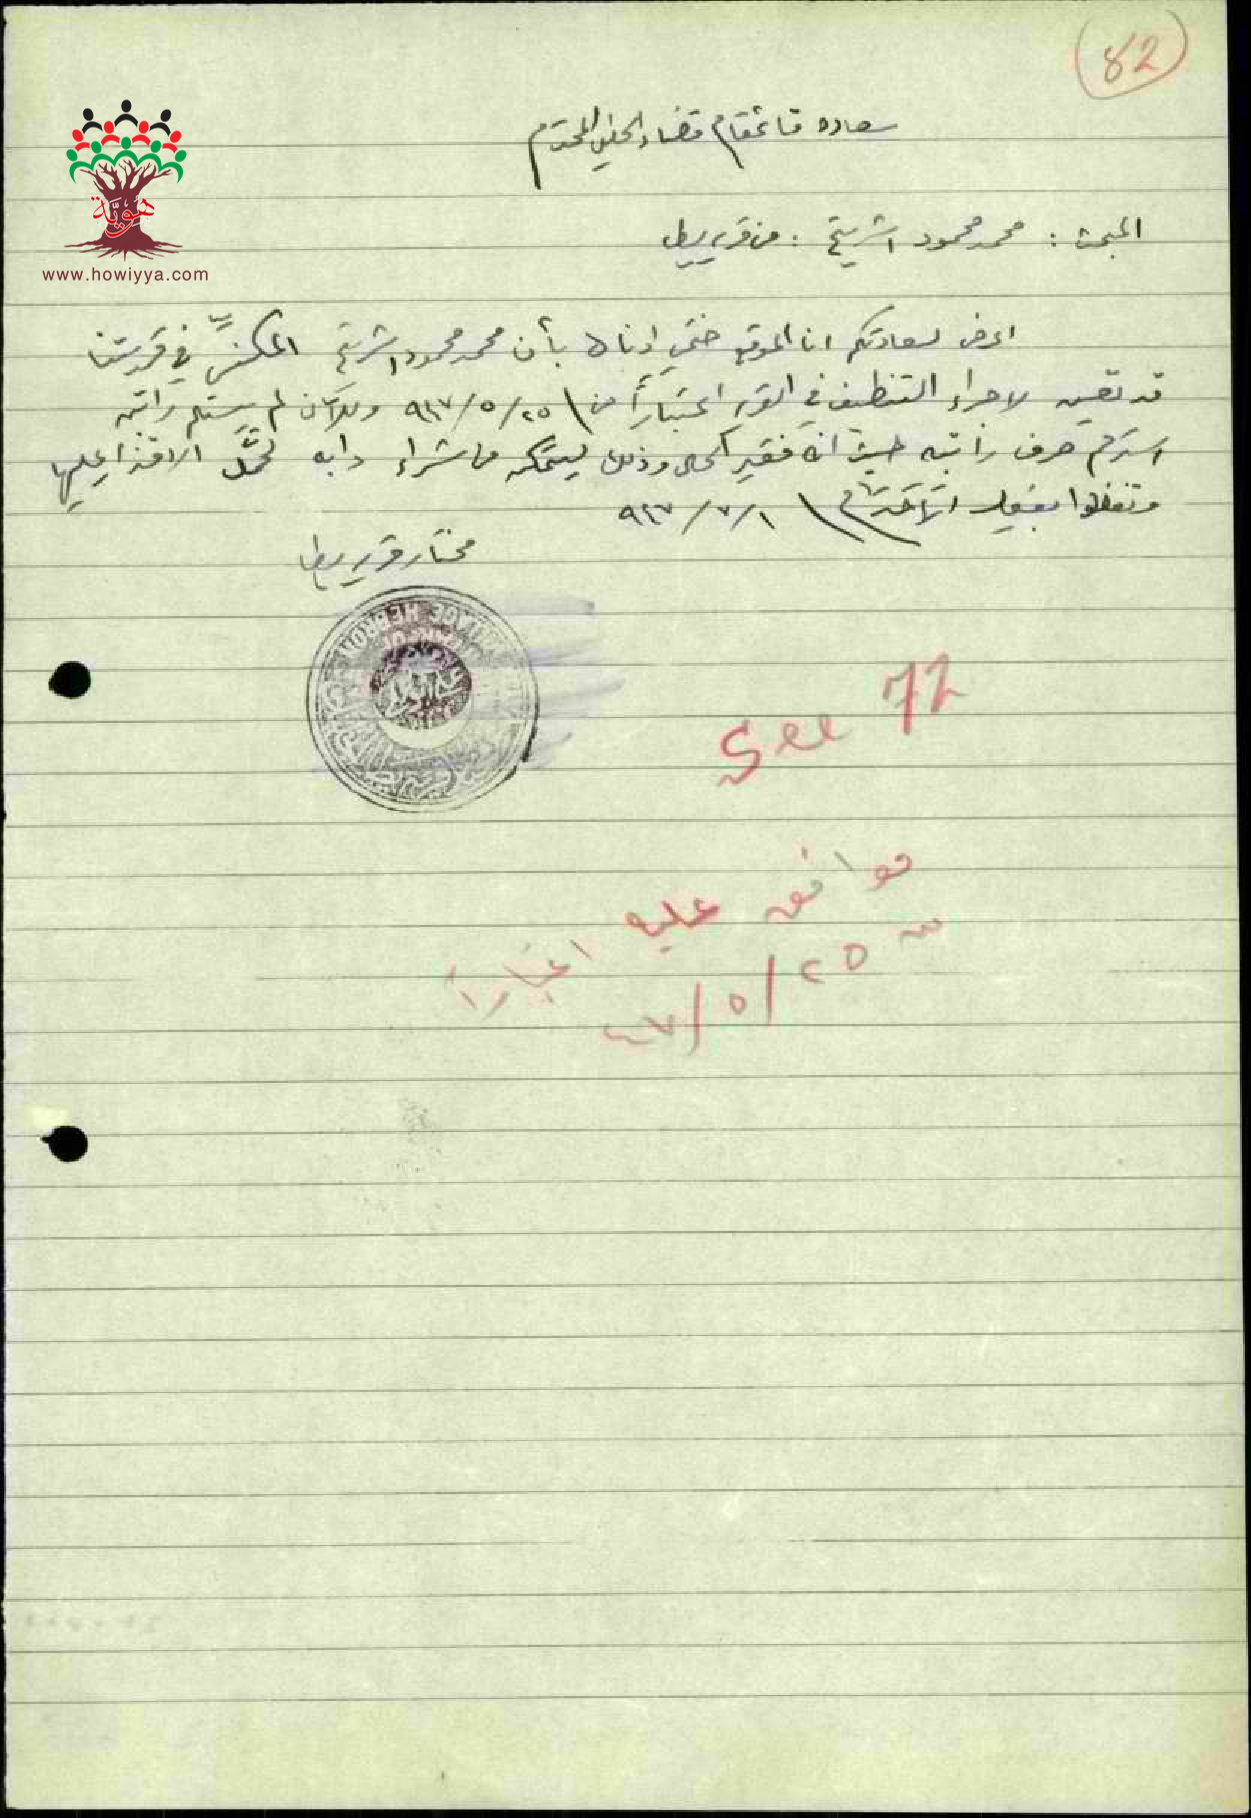 82
هوية
www.howiyya.com
سعادة قائمقام قضاء الخليل المحترم
المبحث : محمد محمود اشريتح : من قرية يطا
اعرض لسعادتكم انا الموقع ختمي ادناه بأن محمد محمود اشريتح المكنس في قريتنا
قد تعين لاجراء التنظيف في القرية اعتباراً من ٢٥/٥/٩٤٧ وللآن لم يستلم راتبه
استرحم صرف راتبه حيث انه فقير الحال وذلك ليتمكن من شراء دابه لحمل الاقذار عليها
وتفضلوا بقبول الاحترام ١/٧/٩٤٧
مختار قرية يطا
HEBRON
See 72
موافق عليه اعتباراً
من ٢٥/٥/٤٧